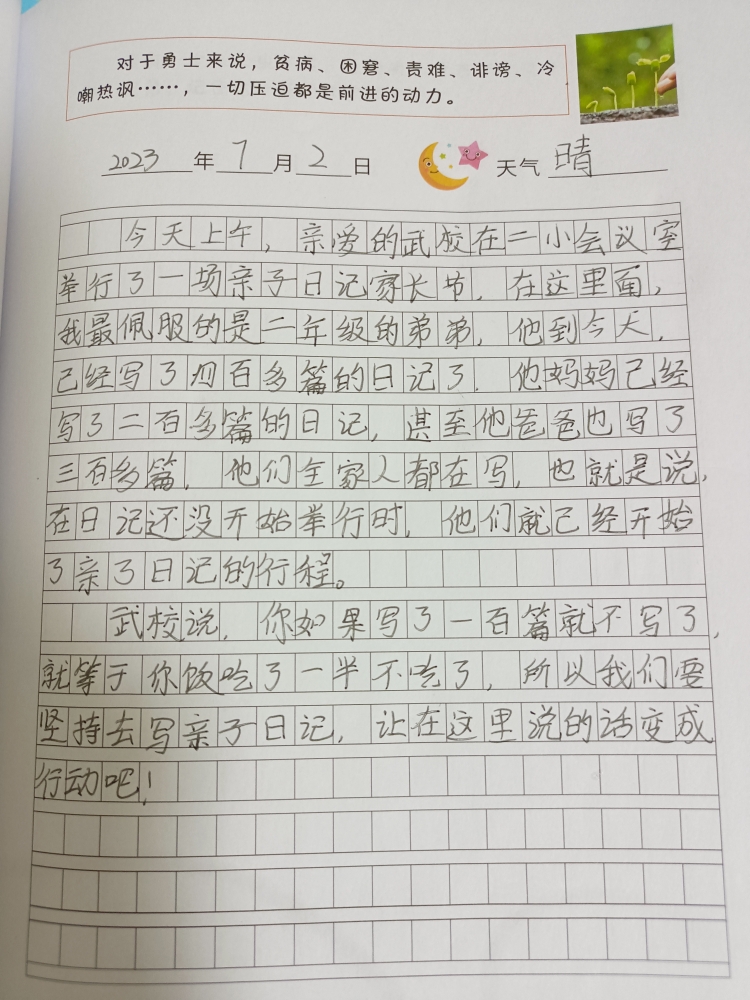 对于勇士来说，贫病、困窘、责难、诽谤、冷
嘲热讽……，一切压迫都是前进的动力。
2023年7月2日 天气 晴
今天上午，亲爱的武校在二小会议室
举行了一场亲子日记家长节，在这里面，
我最佩服的是二年级的弟弟，他到今天，
己经写了四百多篇的日记了，他妈妈己经
写了二百多篇的日记，甚至他爸爸也写了
三百多篇，他们全家人都在写，也就是说，
在日记还没开始举行时，他们就己经开始
了亲子日记的行程。
武校说，你如果写了一百篇就不写了，
就等于你饭吃了一半不吃了，所以我们要
坚持去写亲子日记，让在这里说的话变成
行动吧！